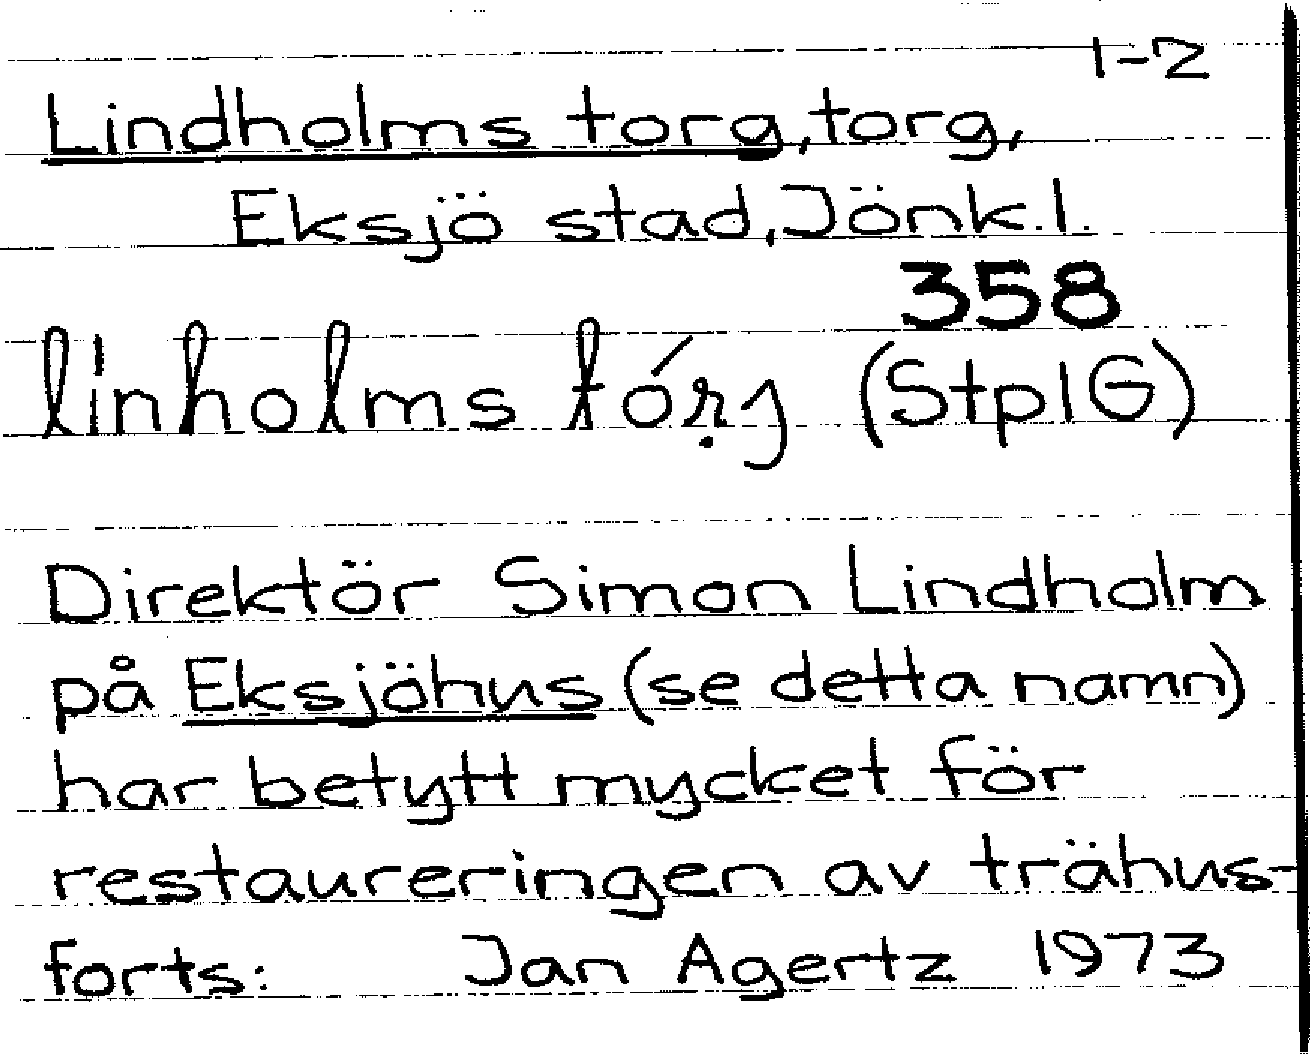 1-2
Lindholms torg, torg,
Eksjö stad, Jönk.l.
358
lìnholms tórg (StplG)
Direktör Simon Lindholm
på Eksjöhus (se detta namn)
har betytt mycket för
restaureringen av trähus-
forts: Jan Agertz 1973